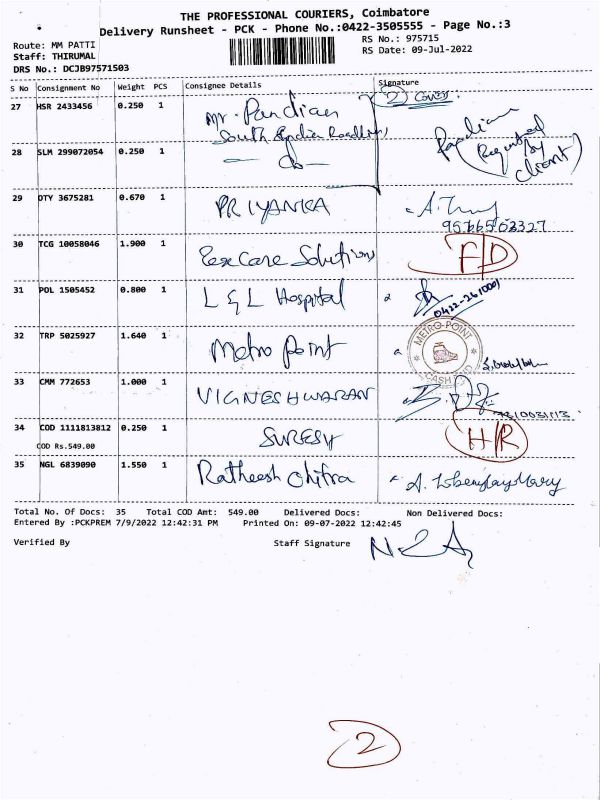 THE PROFESSIONAL COURIERS, Coimbatore
Delivery Runsheet - PCK - Phone No.:0422-3505555 - Page No.:3
Route: MM PATTI RS No.: 975715
Staff: THIRUMAL RS Date: 09-Jul-2022
DRS No.: DCJB97571503
S No Consignment No Weight PCS Consignee Details Signature
27 HSR 2433456 0.250 1 Mr. Pandian 2 Cover.
South India Roadlines
28 SLM 299072054 0.250 1 Do Pandian (Required by client)
29 DTY 3675281 0.670 1 PRIYANKA
9566502327
30 TCG 10058046 1.900 1 Care Solutions F/D
31 POL 1505452 0.800 1 L & L Hospital
32 TRP 5025927 1.640 1 Metro Point METRO POINT
33 CMM 772653 1.000 1 VIGNESHWARAN
34 COD 1111813812 0.250 1 SURESH H/R
COD Rs.549.00
35 NGL 6839090 1.550 1 Ratheesh Chitra
Total No. Of Docs: 35 Total COD Amt: 549.00 Delivered Docs: Non Delivered Docs:
Entered By :PCKPREM 7/9/2022 12:42:31 PM Printed On: 09-07-2022 12:42:45
Verified By Staff Signature
2